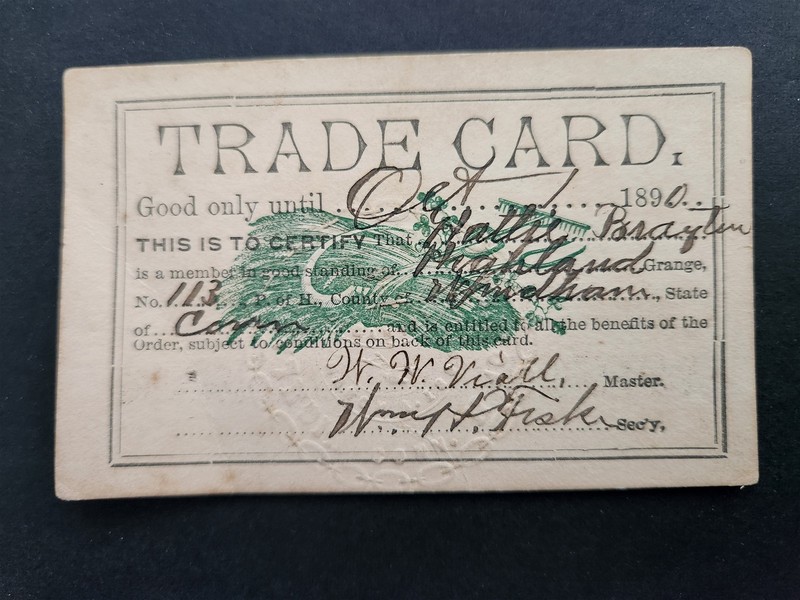 TRADE CARD.
Good only until Oct 1 1890..
THIS IS TO CERTIFY That Hattie Brayton
is a member in good standing of.. Highland Grange,
No. 113 P. of H., County of Windham, State
of Conn and is entitled to all the benefits of the
Order, subject to conditions on back of this card.
W. W. Viall, Master.
Fisk Sec'y,